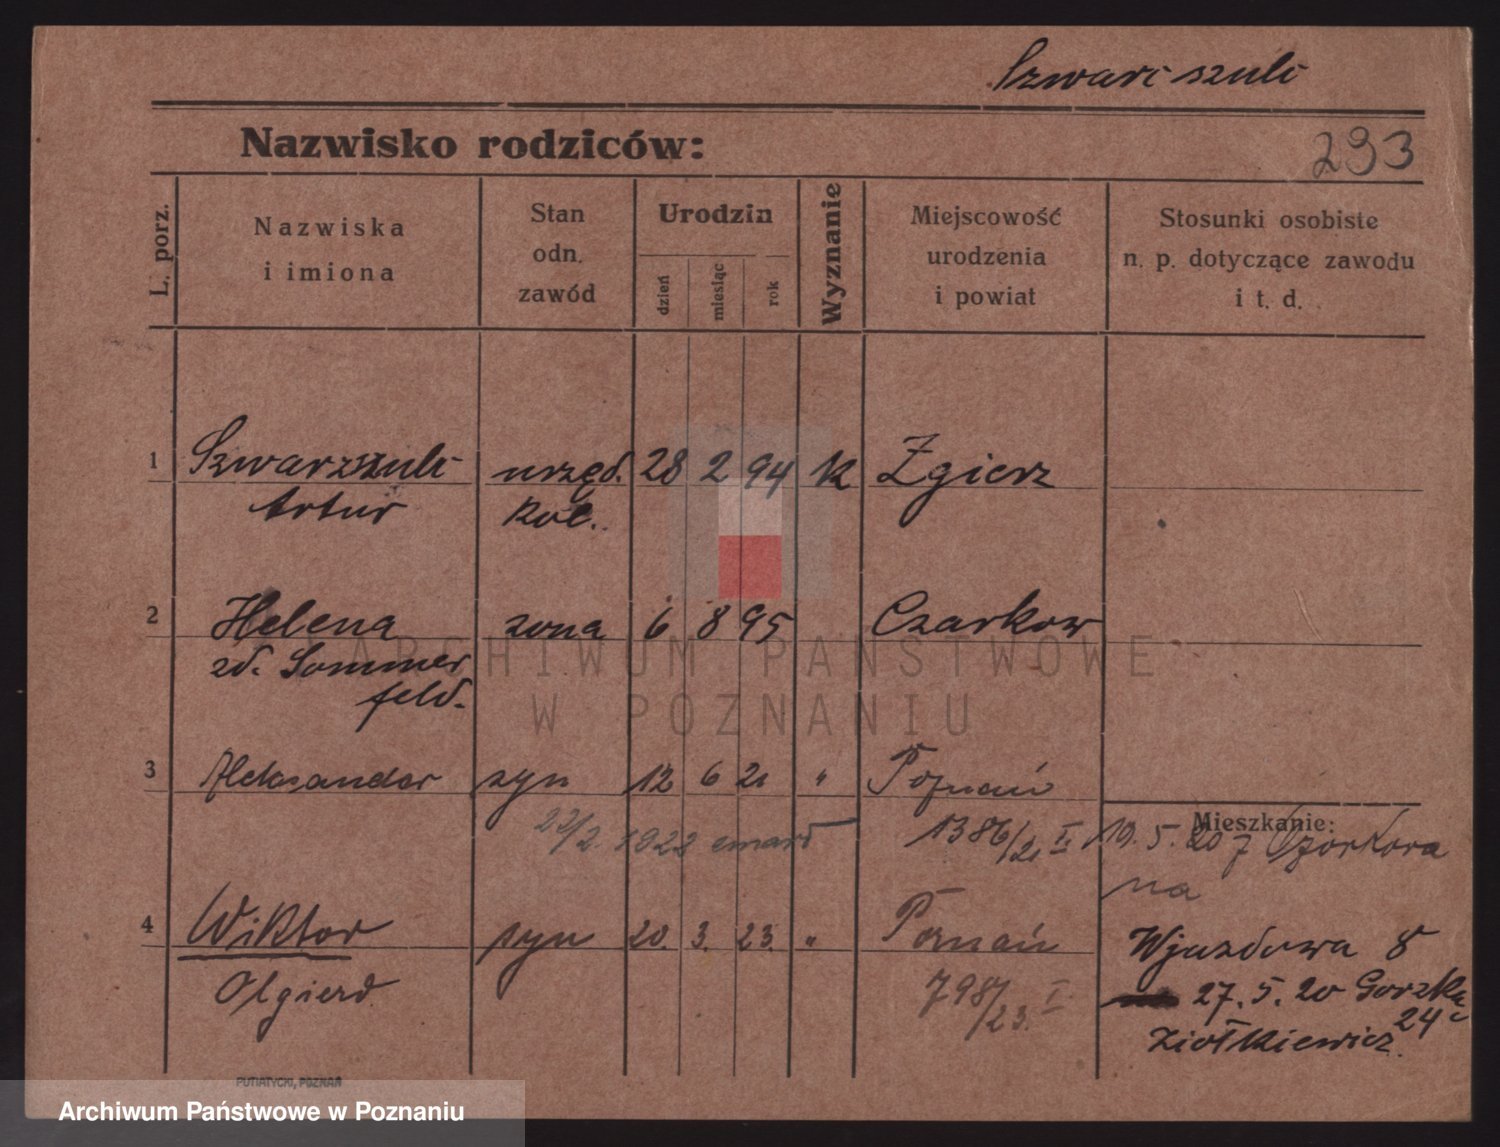 Szwarcszulc
Nazwisko rodziców:
293
L. porz.
Nazwiska
i imiona
Stan
odn.
zawód
Urodzin
dzień
miesiąc
rok
Wyznanie
Miejscowość
urodzenia
i powiat
Stosunki osobiste
n. p. dotyczące zawodu
i t. d.
1 Szwarzszulc urzęd. 28 2 94 k Zgierz
Artur kol.
2 Helena zona 6 8 95 Czarkow
zd. Sommer
feld.
3 Aleksander syn 12 6 21 " Poznań
Mieszkanie:
22/2. 1922 zmarł 1386/21 II 19. 5. 20 z
na
4 Wiktor syn 20. 3. 23. " Poznań
Wjazdowa 8
Olgierd 798/23. I
27. 5. 20 Gorzka
24
Ziołkiewicz.
ARCHIWUM PAŃSTWOWE
W POZNANIU
PUTIATYCKI, POZNAŃ
Archiwum Państwowe w Poznaniu